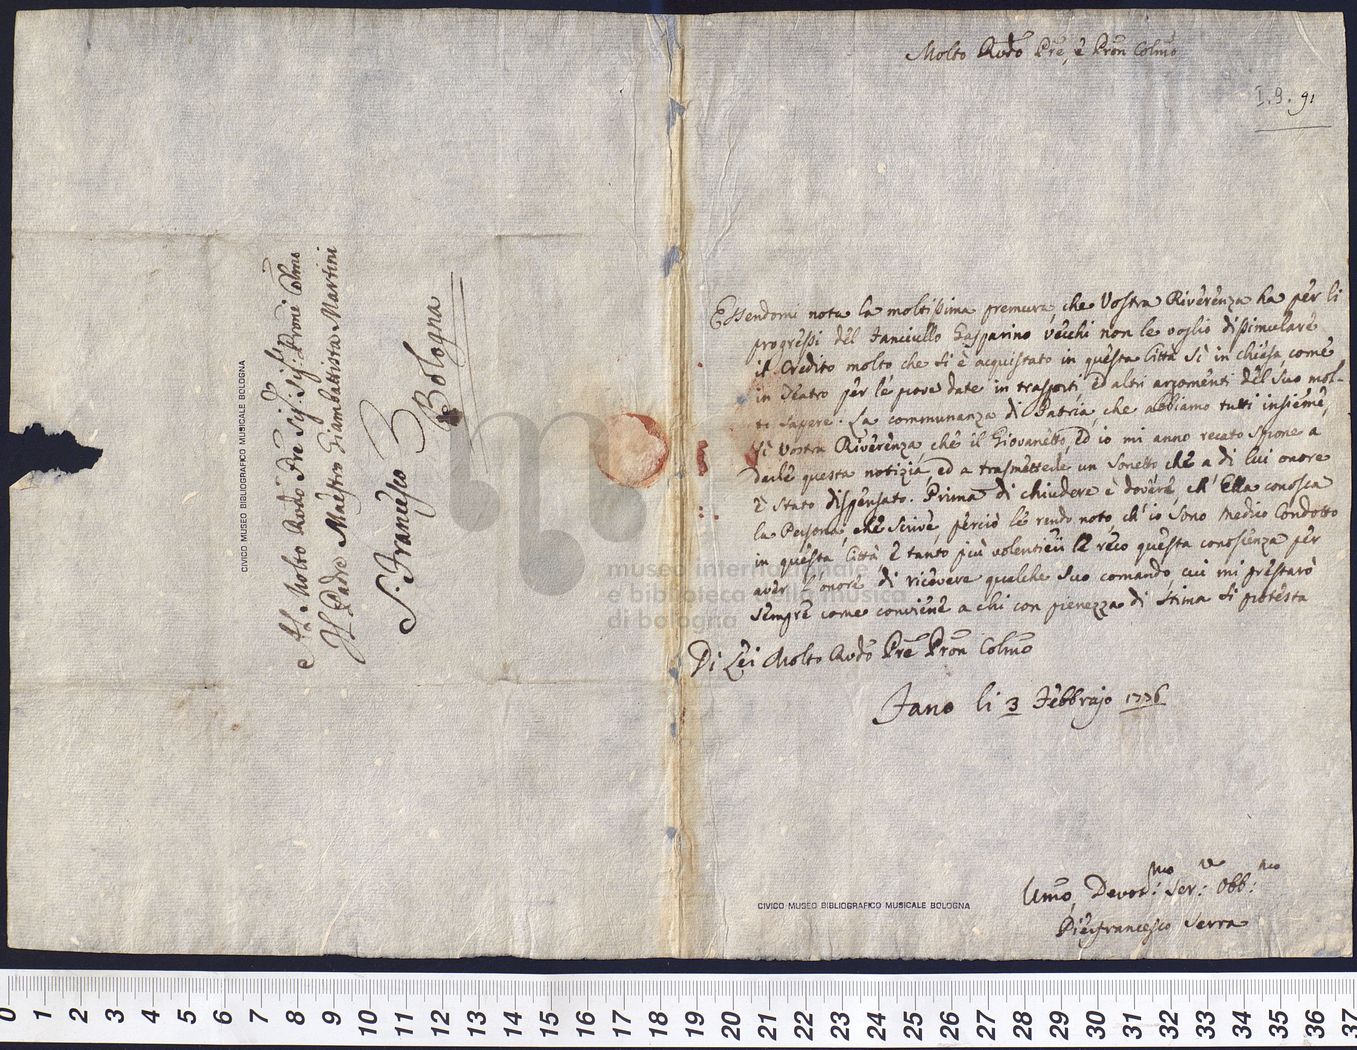 Molto Rvdo Pre, e Pron Colmo
I.9.91
Essendomi nota la moltissima premura, che Vostra Riverenza ha per li
progressi del fanciullo Gasparino Vecchi non le voglio dissimulare
il Credito molto che si è acquistato in questa Città sì in chiesa, come
in Teatro per le prove date in trasporti, ed altri argomenti del suo mol-
to sapere. La communanza di Patria, che abbiamo tutti insieme,
sì Vostra Riverenza che il Giovanetto, ed io mi anno recato sprone a
darle questa notizia, ed a trasmetterle un Sonetto che a di lui onore
è stato dispensato. Prima di chiudere è dovere, ch' Ella conosca
la Persona, che scrive, perciò le rendo noto, ch' io sono Medico Condotto
in questa Città, e tanto più volentieri le reco questa conoscienza per
aver l'onore di ricevere qualche suo comando, cui mi prestarò
sempre come conviene a chi con pienezza di stima si protesta
Di Lei Molto Rvdo Pre Pron Colmo
Fano li 3 Febbrajo 1776
Umo, Devot:mo Ser:re Obb:mo
Pierfrancesco Serra
CIVICO MUSEO BIBLIOGRAFICO MUSICALE BOLOGNA
Al Molto Rvdo Pre Sig. Sig. Prone Colmo
Il Padre Maestro Giambattista Martini
S. Francesco
Bologna
CIVICO MUSEO BIBLIOGRAFICO MUSICALE BOLOGNA
museo internazionale
e biblioteca della musica
di bologna
0 1 2 3 4 5 6 7 8 9 10 11 12 13 14 15 16 17 18 19 20 21 22 23 24 25 26 27 28 29 30 31 32 33 34 35 36 37